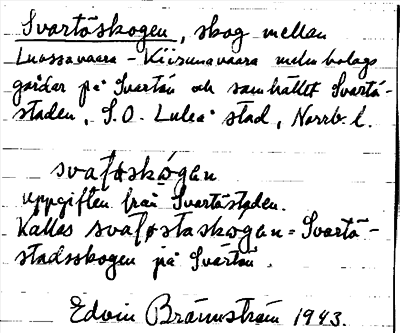 Svartöskogen, skog mellan
Luossavaara - Kiirunavaara malmbolags
gårdar på Svartön och samhället Svartö-
staden, S.O. Luleå stad, Norrb. l.
svaʈøskógan
uppgiften från Svartöstaden.
Kallas svaʈøstaskogan = Svartö-
stadsskogen på Svartön.
Edvin Brännström 1943.